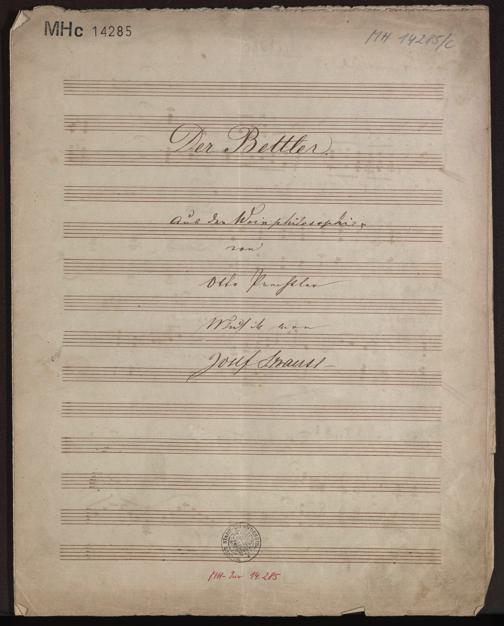 MHc 14285
MH 14285/c
Der Bettler.
Aus der Weinphilosophie.
von
Otto Prechtler
Musik von
Josef Strauss
MH-Inv 14.285